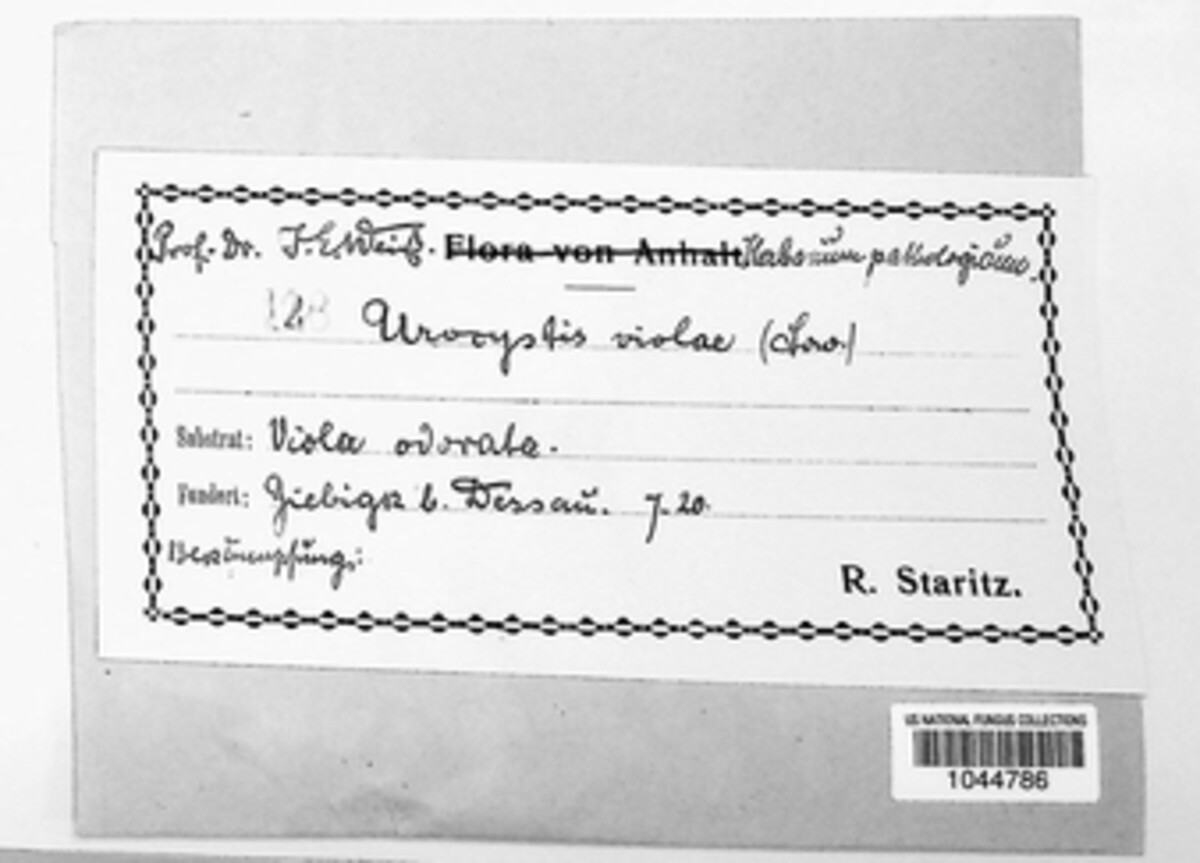 Prof. Dr. J. E. Weiß. Flora von Anhalt Herbarium pathologicum.
128 Urocystis violae (Sow.)
Substrat: Viola odorata.
Fundort: Ziebigk b. Dessau. 7. 20.
Bekämpfung:
R. Staritz.
US NATIONAL FUNGUS COLLECTIONS
1044786